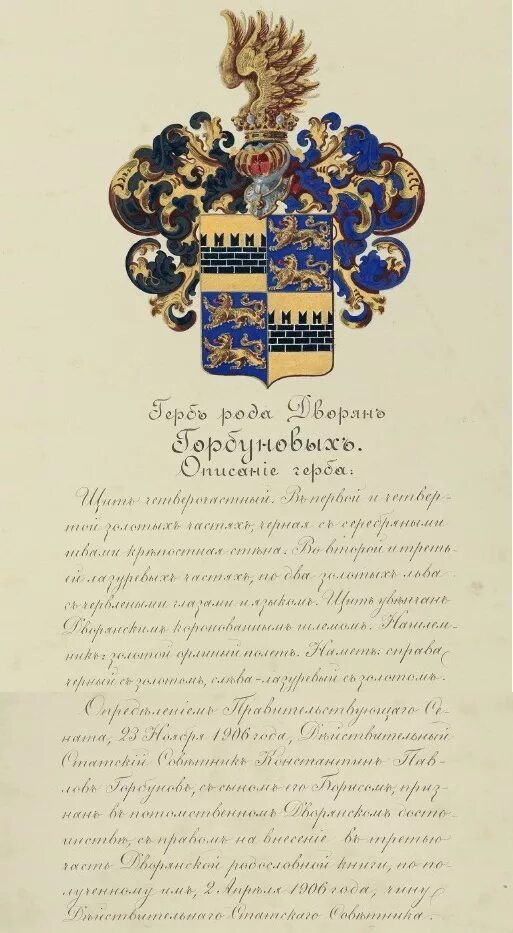 Гербъ рода Дворянъ
Горбуновыхъ.
Описаніе герба:
Щитъ четверочастный. Въ первой и четвер-
той золотыхъ частяхъ, черная съ серебряными
швами крѣпостная стѣна. Во второй и треть-
ей лазуревыхъ частяхъ, по два золотыхъ льва
съ червлеными глазами и языкомъ. Щитъ увѣнчанъ
Дворянскимъ коронованнымъ шлемомъ. Нашлем-
никъ: золотой орлиный полетъ. Наметъ: справа
черный съ золотомъ, слѣва-лазуревый съ золотомъ.
Опредѣленіемъ Правительствующаго Се-
ната, 23 Ноября 1906 года, Дѣйствительный
Статскій Совѣтникъ Константинъ Пав-
ловъ Горбуновъ, съ сыномъ его Борисомъ, приз-
нанъ въ потомственномъ Дворянскомъ досто-
инствѣ, съ правомъ на внесеніе въ третью
часть Дворянской родословной книги, по по-
лученному имъ, 2 Апрѣля 1906 года, чину
Дѣйствительнаго Статскаго Совѣтника.